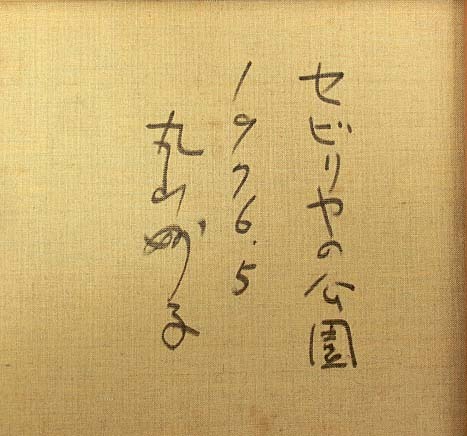 セビリヤの公園
1976.5
丸山妙子